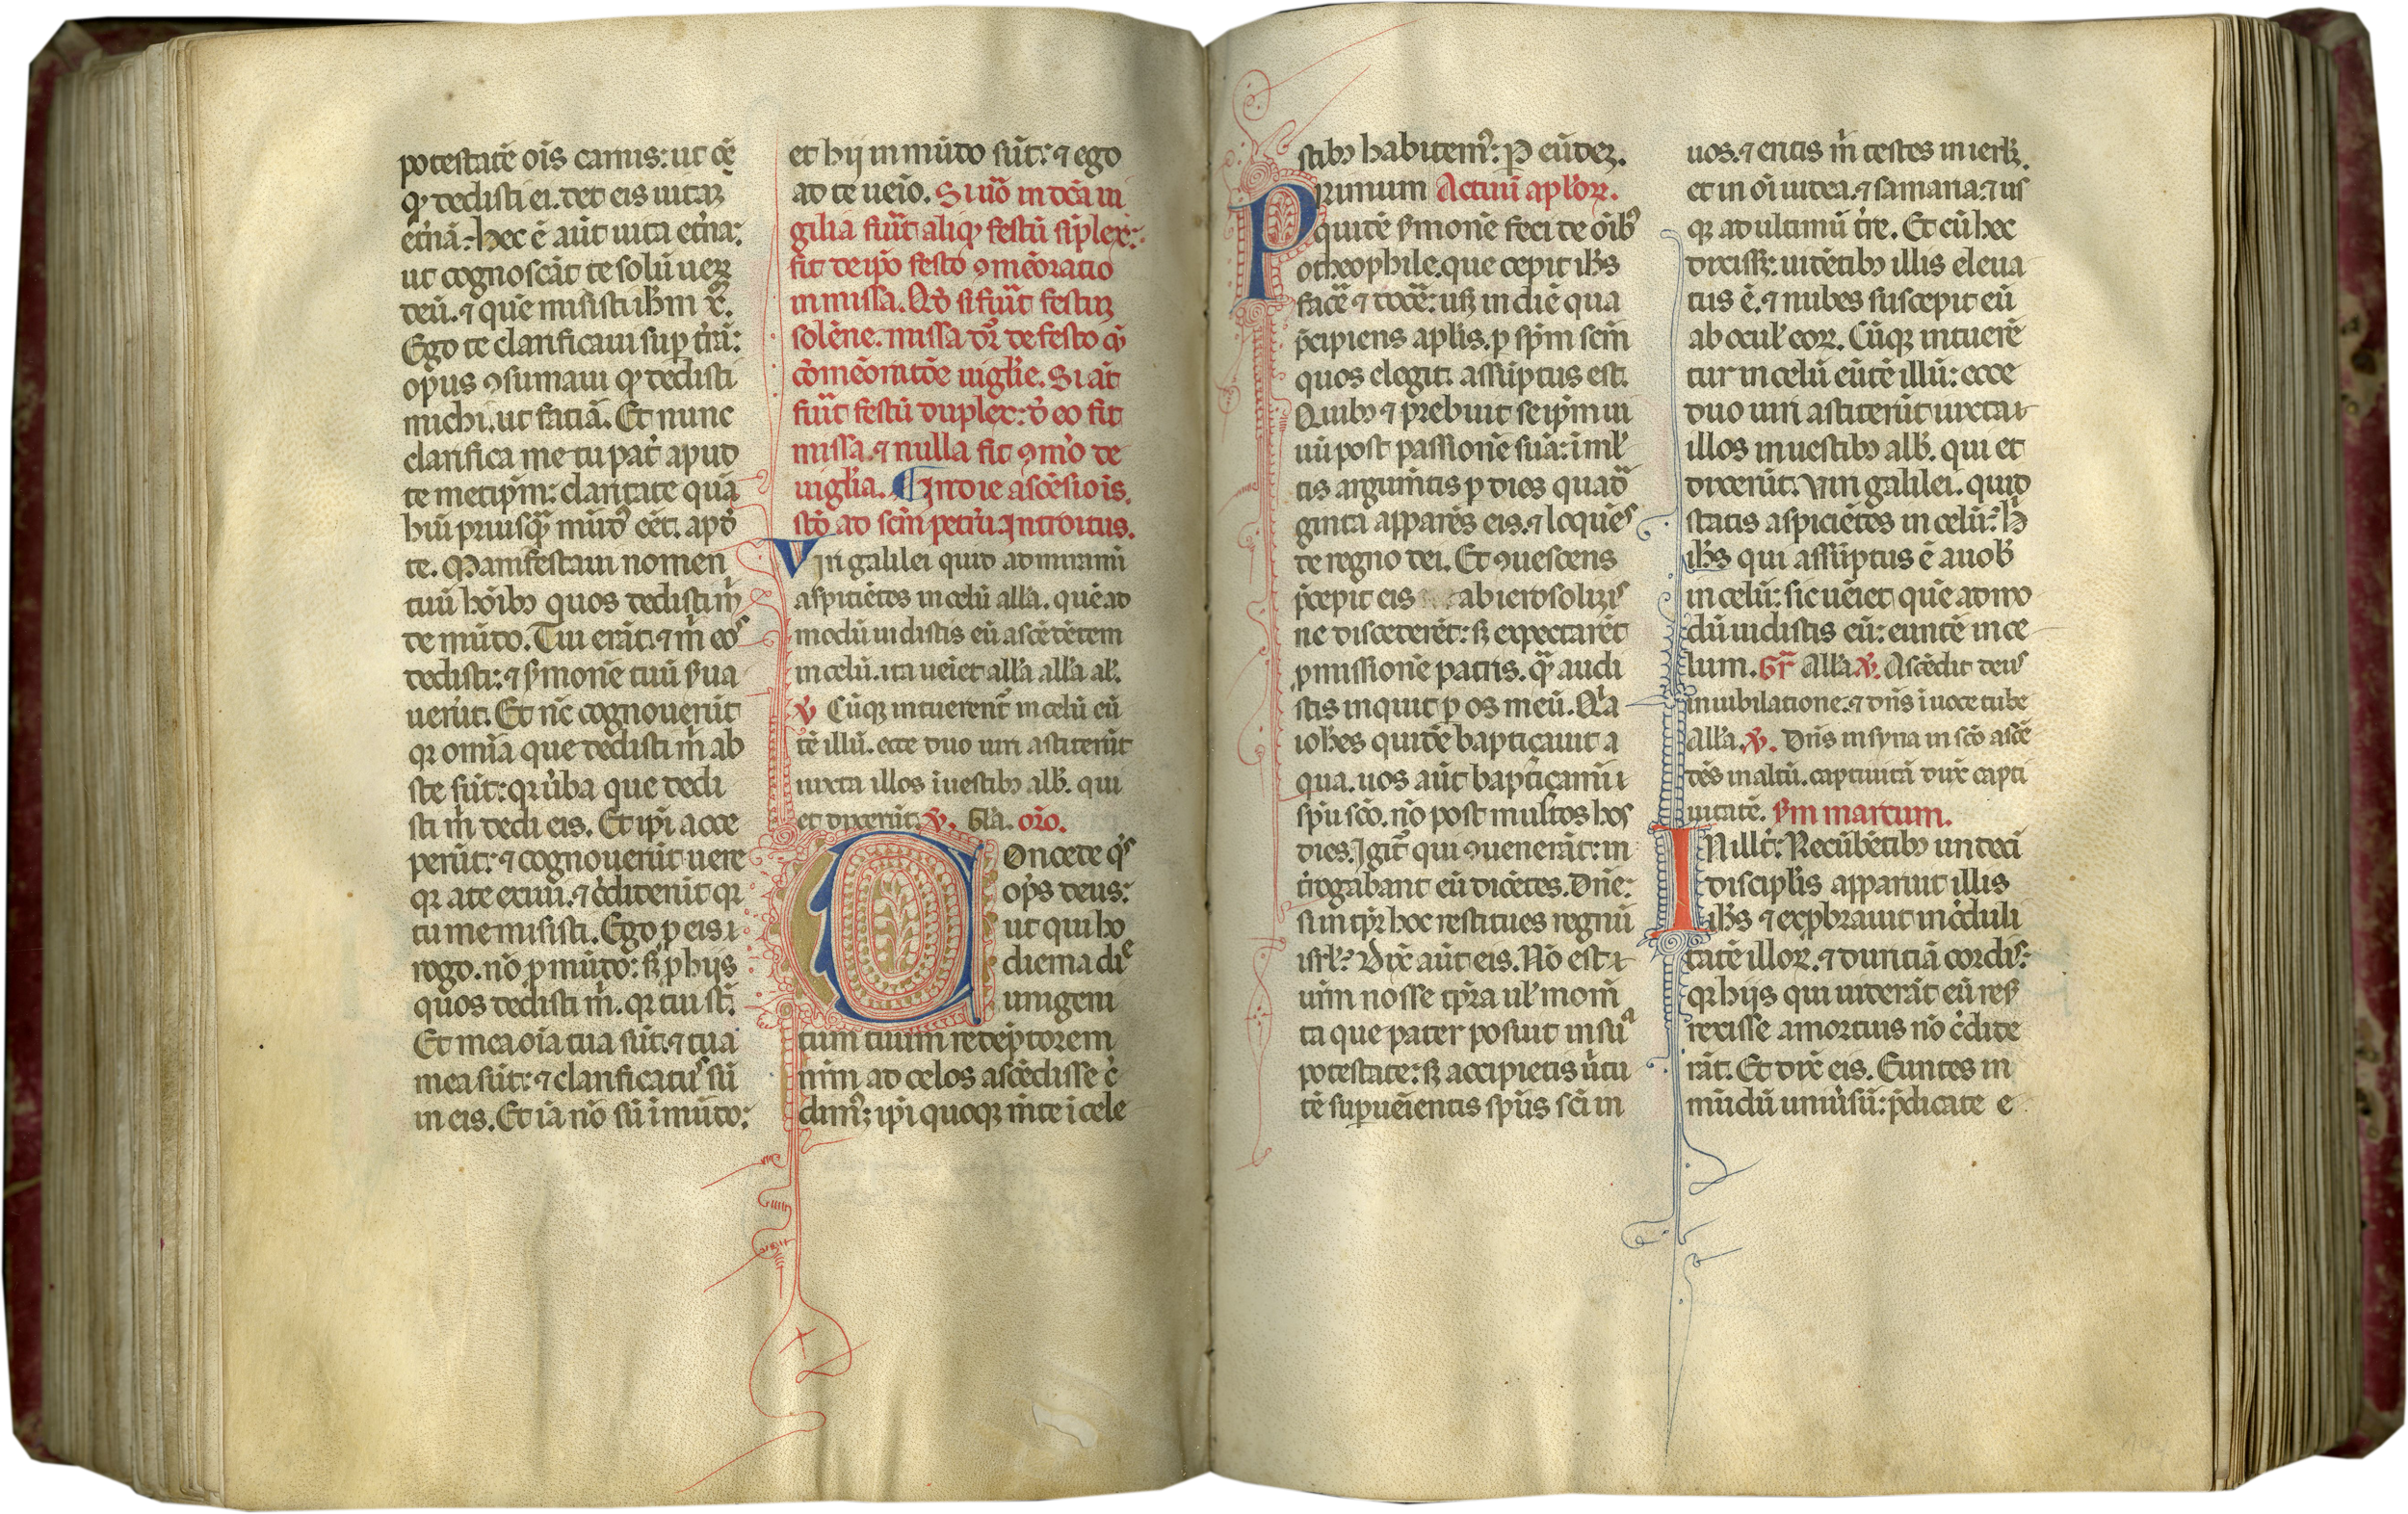 potestatē oīs carnis: ut oē
qḋ dedisti ei. det eis uitaꝫ
et̄nā. hec ē aūt uita et̄na:
ut cognoscāt te solū ueꝝ
deū. ⁊ quē misisti ih̄m x̄.
Ego te clarificaui suꝑ t̄rā:
opus ꝯsumaui qḋ dedisti
michi. ut faciā. Et nunc
clarifica me tu pat̄ apud
te metip̄m: claritate quā
hui priusqꝫ mūdꝰ eēt. apḋ
te. Manifestaui nomen
tuū hoībꝫ quos dedisti m̄
de mūdo. Tui erāt. ⁊ m̄ eos
dedisti: ⁊ ẜmonē tuū ẜua
uerūt. Et nc̄ cognouerūt
qꝛ omīa que dedisti m̄ abs
te sūt: qꝛ ūba que dedi
sti m̄ dedi eis. Et ip̄i acce
perūt: ⁊ cognouerūt uere
qꝛ a te exiui. ⁊ c̄diderūt qꝛ
tu me misisti. Ego ꝓ eis
rogo. nō ꝓ mūdo: sꝫ ꝓ hijs
quos dedisti m̄. qꝛ tui st̄.
Et mea oīa tua sūt. ⁊ tua
mea sūt: ⁊ clarificatꝰ sū
in eis. Et iā nō sū ī mūdo:
et hij in mūdo sūt: ⁊ ego
ad te ueīo. Si u̅o in dc̄a ui
gilia fūit aliqḋ festū sīplex:
fit de ip̄o festo ꝯmēoratio
in missa. Qḋ si fūit festuꝫ
solēne. missa dr̄ de festo cū
cōmēoratōe uigl̄ie. Si aūt
fūit festū duplex: de eo fit
missa. ⁊ nulla fit ꝯmēo de
uigl̄ia. ¶ In die ascēsiōis.
stō ad scm̄ petrū. Introitus.
Viri galilei quid admiramī
aspiciētes in celū all̄a. quē ad
modū uidistis eū ascēdētem
in celū. ita ueīet all̄a all̄a al̄.
℣ Cūqꝫ intuerent̄ in celū eū
tē illū. ecce duo uiri astiterūt
iuxta illos ī uestibꝫ alb̄. qui
et dixerūt. ℣. Gl̄a. or̄o.
Oncede qs̄
op̄s deus:
ut qui ho
dierna die
unigeni
tum tuum redēptorem
nr̄m ad celos ascēdisse c̄
dimꝰ: ip̄i quoqꝫ mēte ī cele
stibꝫ habitemꝰ: P eūdeꝫ.
Primum Actuū apl̄oꝝ.
quidē ẜmonē feci de oībꝰ
o theophile. que cepit ih̄s
facē ⁊ docē: usqꝫ in diē qua
p̄cipiens apl̄is. ꝑ sp̄m scm̄
quos elegit. assūptus est.
Quibꝫ ⁊ prebuit seip̄m ui
uū post passionē suā: ī ml̄
tis argum̄tis ꝑ dies quad̄
ginta apparēs eis. ⁊ loquēs
de regno dei. Et ꝯuescens
p̄cepit eis ab ierosolimis
ne discederēt: sꝫ expectarēt
ꝓmissionē patris. quā audi
stis inquit ꝑ os meū. Qꝛ
ioh̄es quidē baptiçauit a
qua. uos aūt baptiçamī
sp̄u scō. nō post multos hos
dies. Igit̄ qui ꝯuenerāt: in
t̄rogabant eū dicētes. Dn̄e:
si in tp̄r hoc restitues regnū
isrl̄? Dix̄ aūt eis. Nō est
ur̄m nosse tp̄ra ul̄ mom̄
ta que pater posuit in sua
potestate: sꝫ accipietis ūtu
tē suꝑueīentis sp̄us scī in
uos. ⁊ eritis m̄ testes in ierl̄ꝫ.
et in oī iudea. ⁊ samaria: ⁊ us
qꝫ ad ultimū t̄re. Et cū hec
dixissꝫ: uidētibꝫ illis eleua
tus ē. ⁊ nubes suscepit eū
ab ocul̄ eoꝝ. Cūqꝫ intuerē
tur in celū eūtē illū: ecce
duo uiri astiterūt iuxta
illos in uestibꝫ alb̄. qui et
dixerūt. Viri galilei. quid
statis aspiciētes in celū? h̄
ih̄s qui assūptus ē a uob̄
in celū: sic ueīet quē ad mo
dū uidistis eū: euntē in ce
lum. Gr̄ All̄a. ℣. Ascēdit deus
in iubilatione: ⁊ dn̄s ī uoce tube
All̄a. ℣. Dn̄s in syna in scō ascē
dēs in altū. captiuitā dux̄ capti
uitatē. ẜm marcum.
IN ill̄t: Recūbētibꝫ undeci
discipl̄is apparuit illis
ih̄s ⁊ exp̄brauit inc̄duli
tatē illoꝝ. ⁊ duritiā cordis:
qꝛ hijs qui uiderāt eū resur
rexisse a mortuis nō c̄dide
rāt. Et dix̄ eis. Euntes in
mūdū uniūsū: p̄dicate e